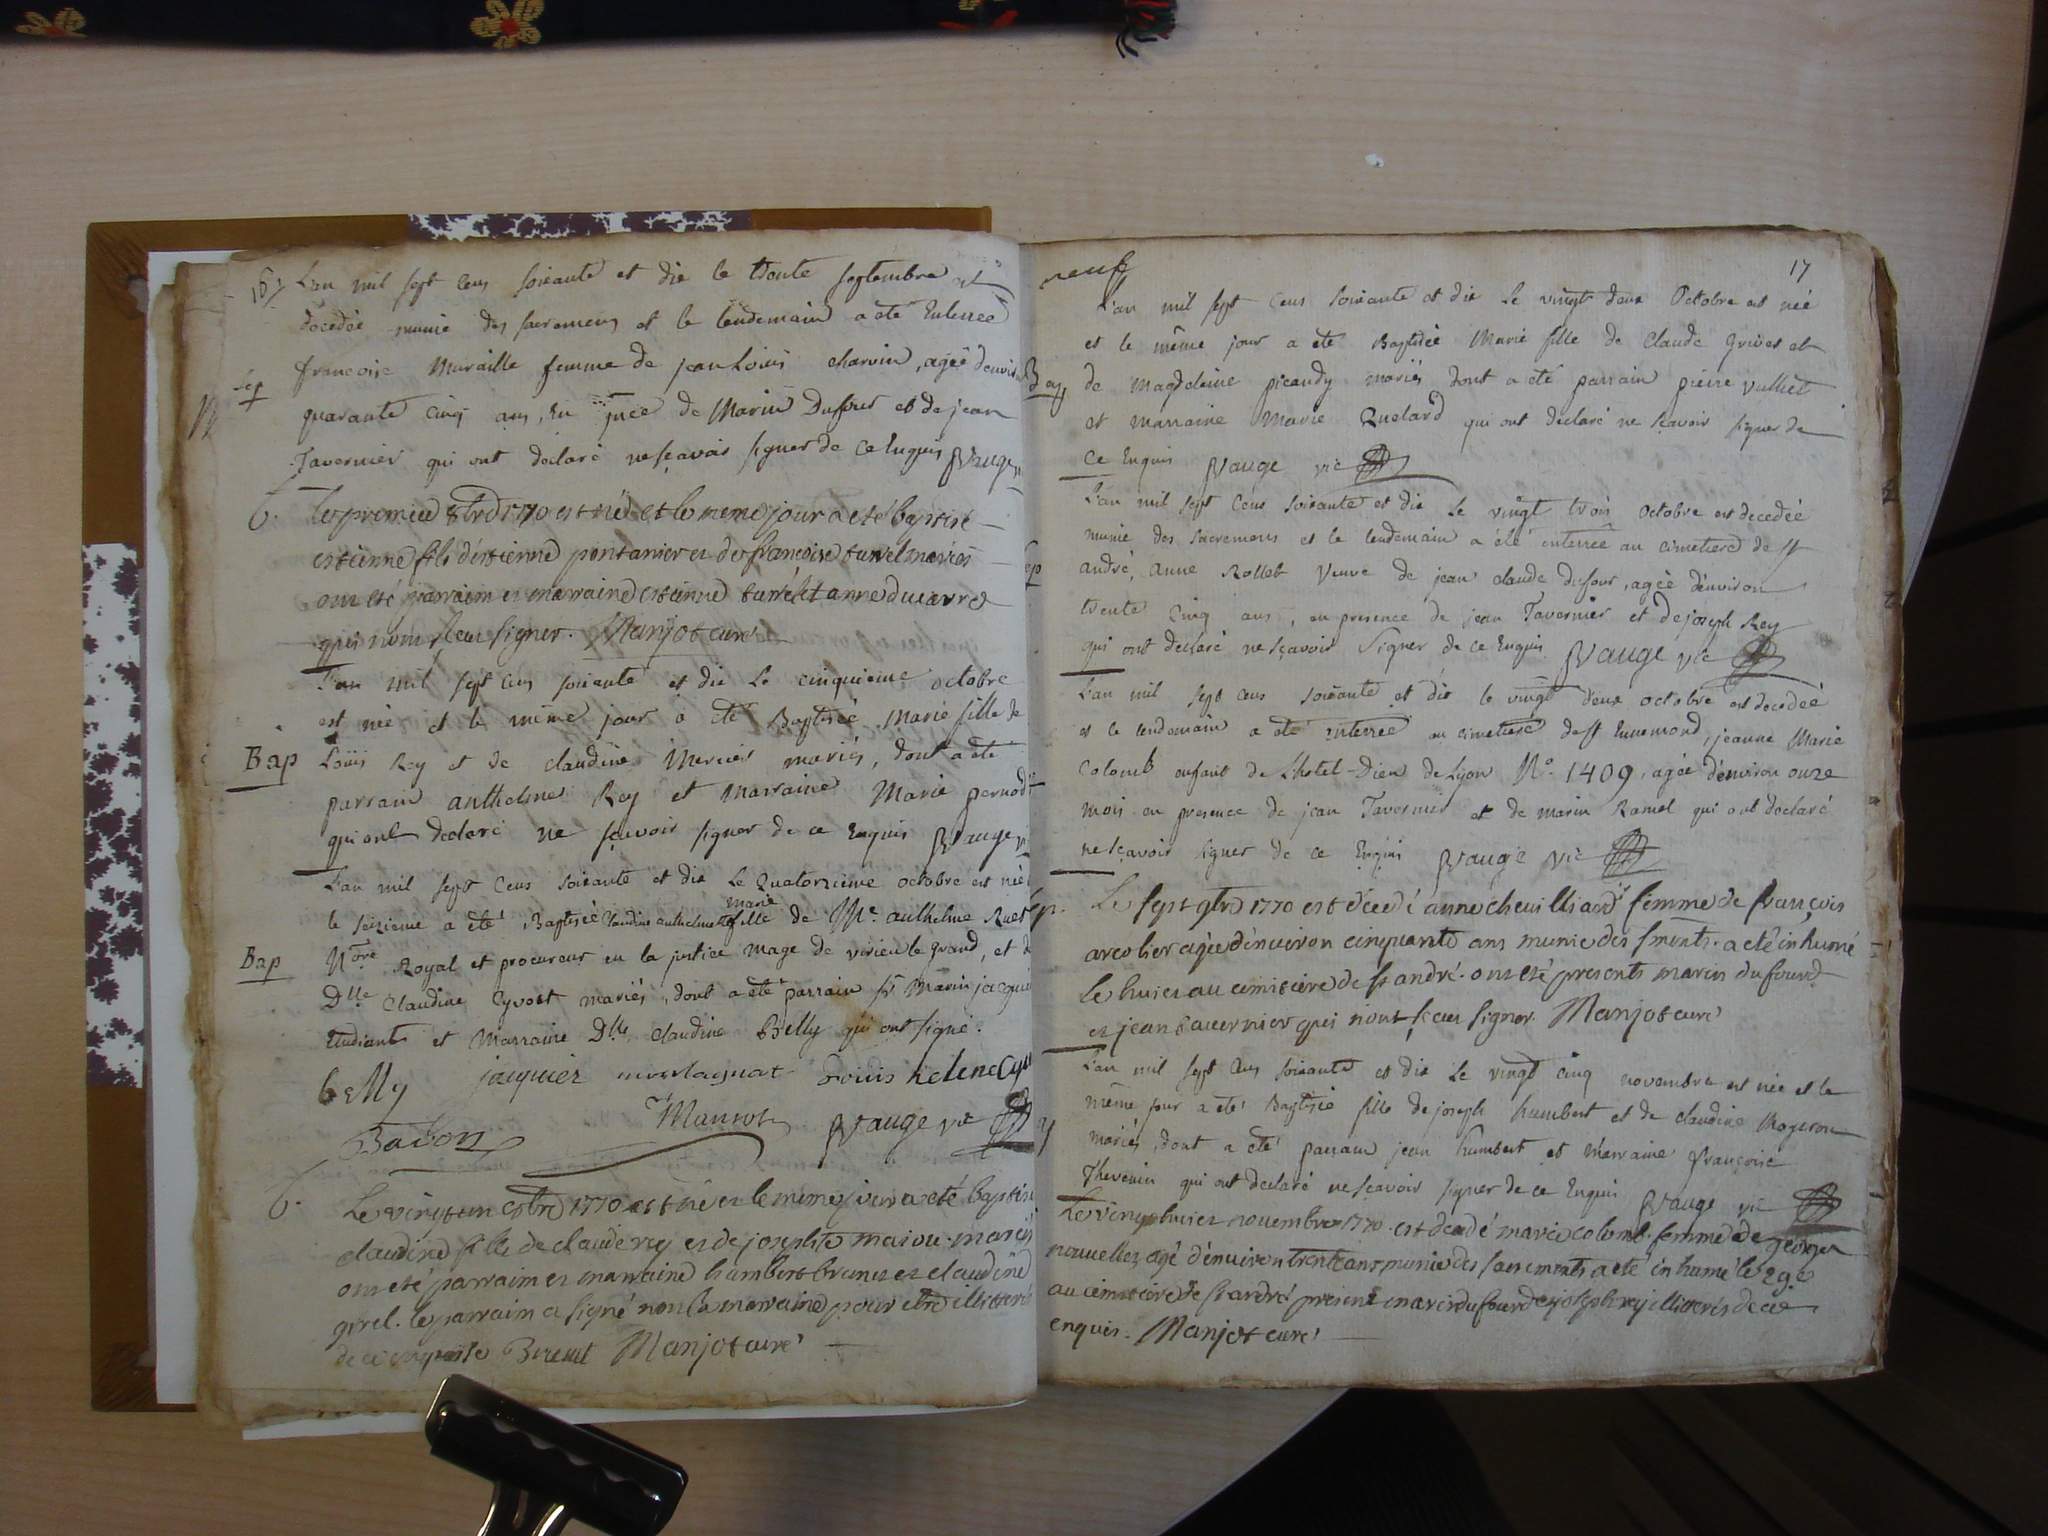 16
L'an mil sept cens soixante et dix le trente septembre est
decedée munie des sacremens et le lendemain a été Enterrée
Sep
francoise Muraille femme de jean Louis charvin, agée d'environ
quarante cinq ans, En pnce de Marin Dufour et de jean
Tavernier qui ont déclaré ne sçavoir signer de ce Enquis Vauge
b.
Le premier 8bre 1770 est né et le meme jour a eté baptisé
estienne fils d'estienne pontanier et de francoise turrel mariés
ont été parrain et marraine estienne turrel et anne ducarre
qui n'ont sceu signer. Manjot curé
L'an mil sept cens soixante et dix le cinquieme octobre
est née et le même jour a été Baptisée Marie fille de
Bap
Loüis Rey et de claudine Mercier mariés, dont a été
parrain anthelme Rey et Marraine Marie pernod
qui ont declaré ne sçavoir signer de ce Enquis Vauge
L'an mil sept cens soixante et dix le Quatorzieme octobre est née
marie
le seizieme a été Baptisée claudine anthelmette fille de Mre anthelme Ruet
Bap
Nore Royal et procureur en la justice mage de virieu le grand, et de
Dlle Claudine Cyvoct mariés, dont a été parrain sr Marin jacquier
Etudiant et Marraine Dlle claudine Belly qui ont signé.
belly jacquier montagnat Louis helene
Manjot Vauge vic
Badon
b.
Le vingt un 8bre 1770 est né et le meme jour a eté baptisé
claudine fille de claude rey et de josephte maiou mariés
ont eté parrain et marraine humbert brunet et claudine
girel. le parrain a signé non la marraine pour etre illitterée
de ce enquise Brunet Manjot curé
neuf
17
L'an mil sept cens soixante et dix le vingt deux Octobre est née
et le même jour a été Baptisée Marie fille de Claude Grivet et
Bap
de Magdeleine picaudy mariés dont a été parrain pierre vulliet
et marraine Marie Quelard qui ont declaré ne sçavoir signer de
ce Enquis Vauge vic
L'an mil sept cens soixante et dix le vingt trois octobre est decedée
munie des sacremens et le lendemain a été enterrée au cimetiere de st
Sep
andré, anne Rollet Veuve de jean claude dufour, agée d'environ
trente cinq ans, en presence de jean Tavernier et de joseph Rey
qui ont declaré ne sçavoir signer de ce Enquis Vauge vic
L'an mil sept cens soixante et dix le vingt deux octobre est decedée
et le lendemain a été enterrée au cimetiere de st Ennemond, jeanne Marie
Colomb enfant de L'hotel-Dieu de Lyon No. 1409, agée d'environ onze
mois en presence de jean Tavernier et de marin Ramel qui ont declaré
ne sçavoir signer de ce Enquis Vauge vic
Sep.
Le sept 9bre 1770 est décedé anne cheuilliard femme de françois
arcolier agée d'enuiron cinquante ans munie des sments. a eté inhumé
le huiet au cimitiere de st andré. ont eté presents marin dufour
et jean tauernier qui n'ont sceu signer Manjot curé
L'an mil sept cens soixante et dix le vingt cinq novembre est née et le
même jour a été Baptisée fille de joseph humbert et de claudine Mogeron
mariés, dont a été parrain jean humbert et Marraine françoise
Thevenin qui ont declaré ne sçavoir signer de ce Enquis Vauge vic
Le vingt huiet nouembre 1770 est decedé marie colomb femme de george
nouuellet, agé d'enuiron trente ans, munie des sacrements a eté inhumé le 29e
au cimitiere de st andré present marin dufour et joseph rey illiterés de ce
enquis. Manjot curé